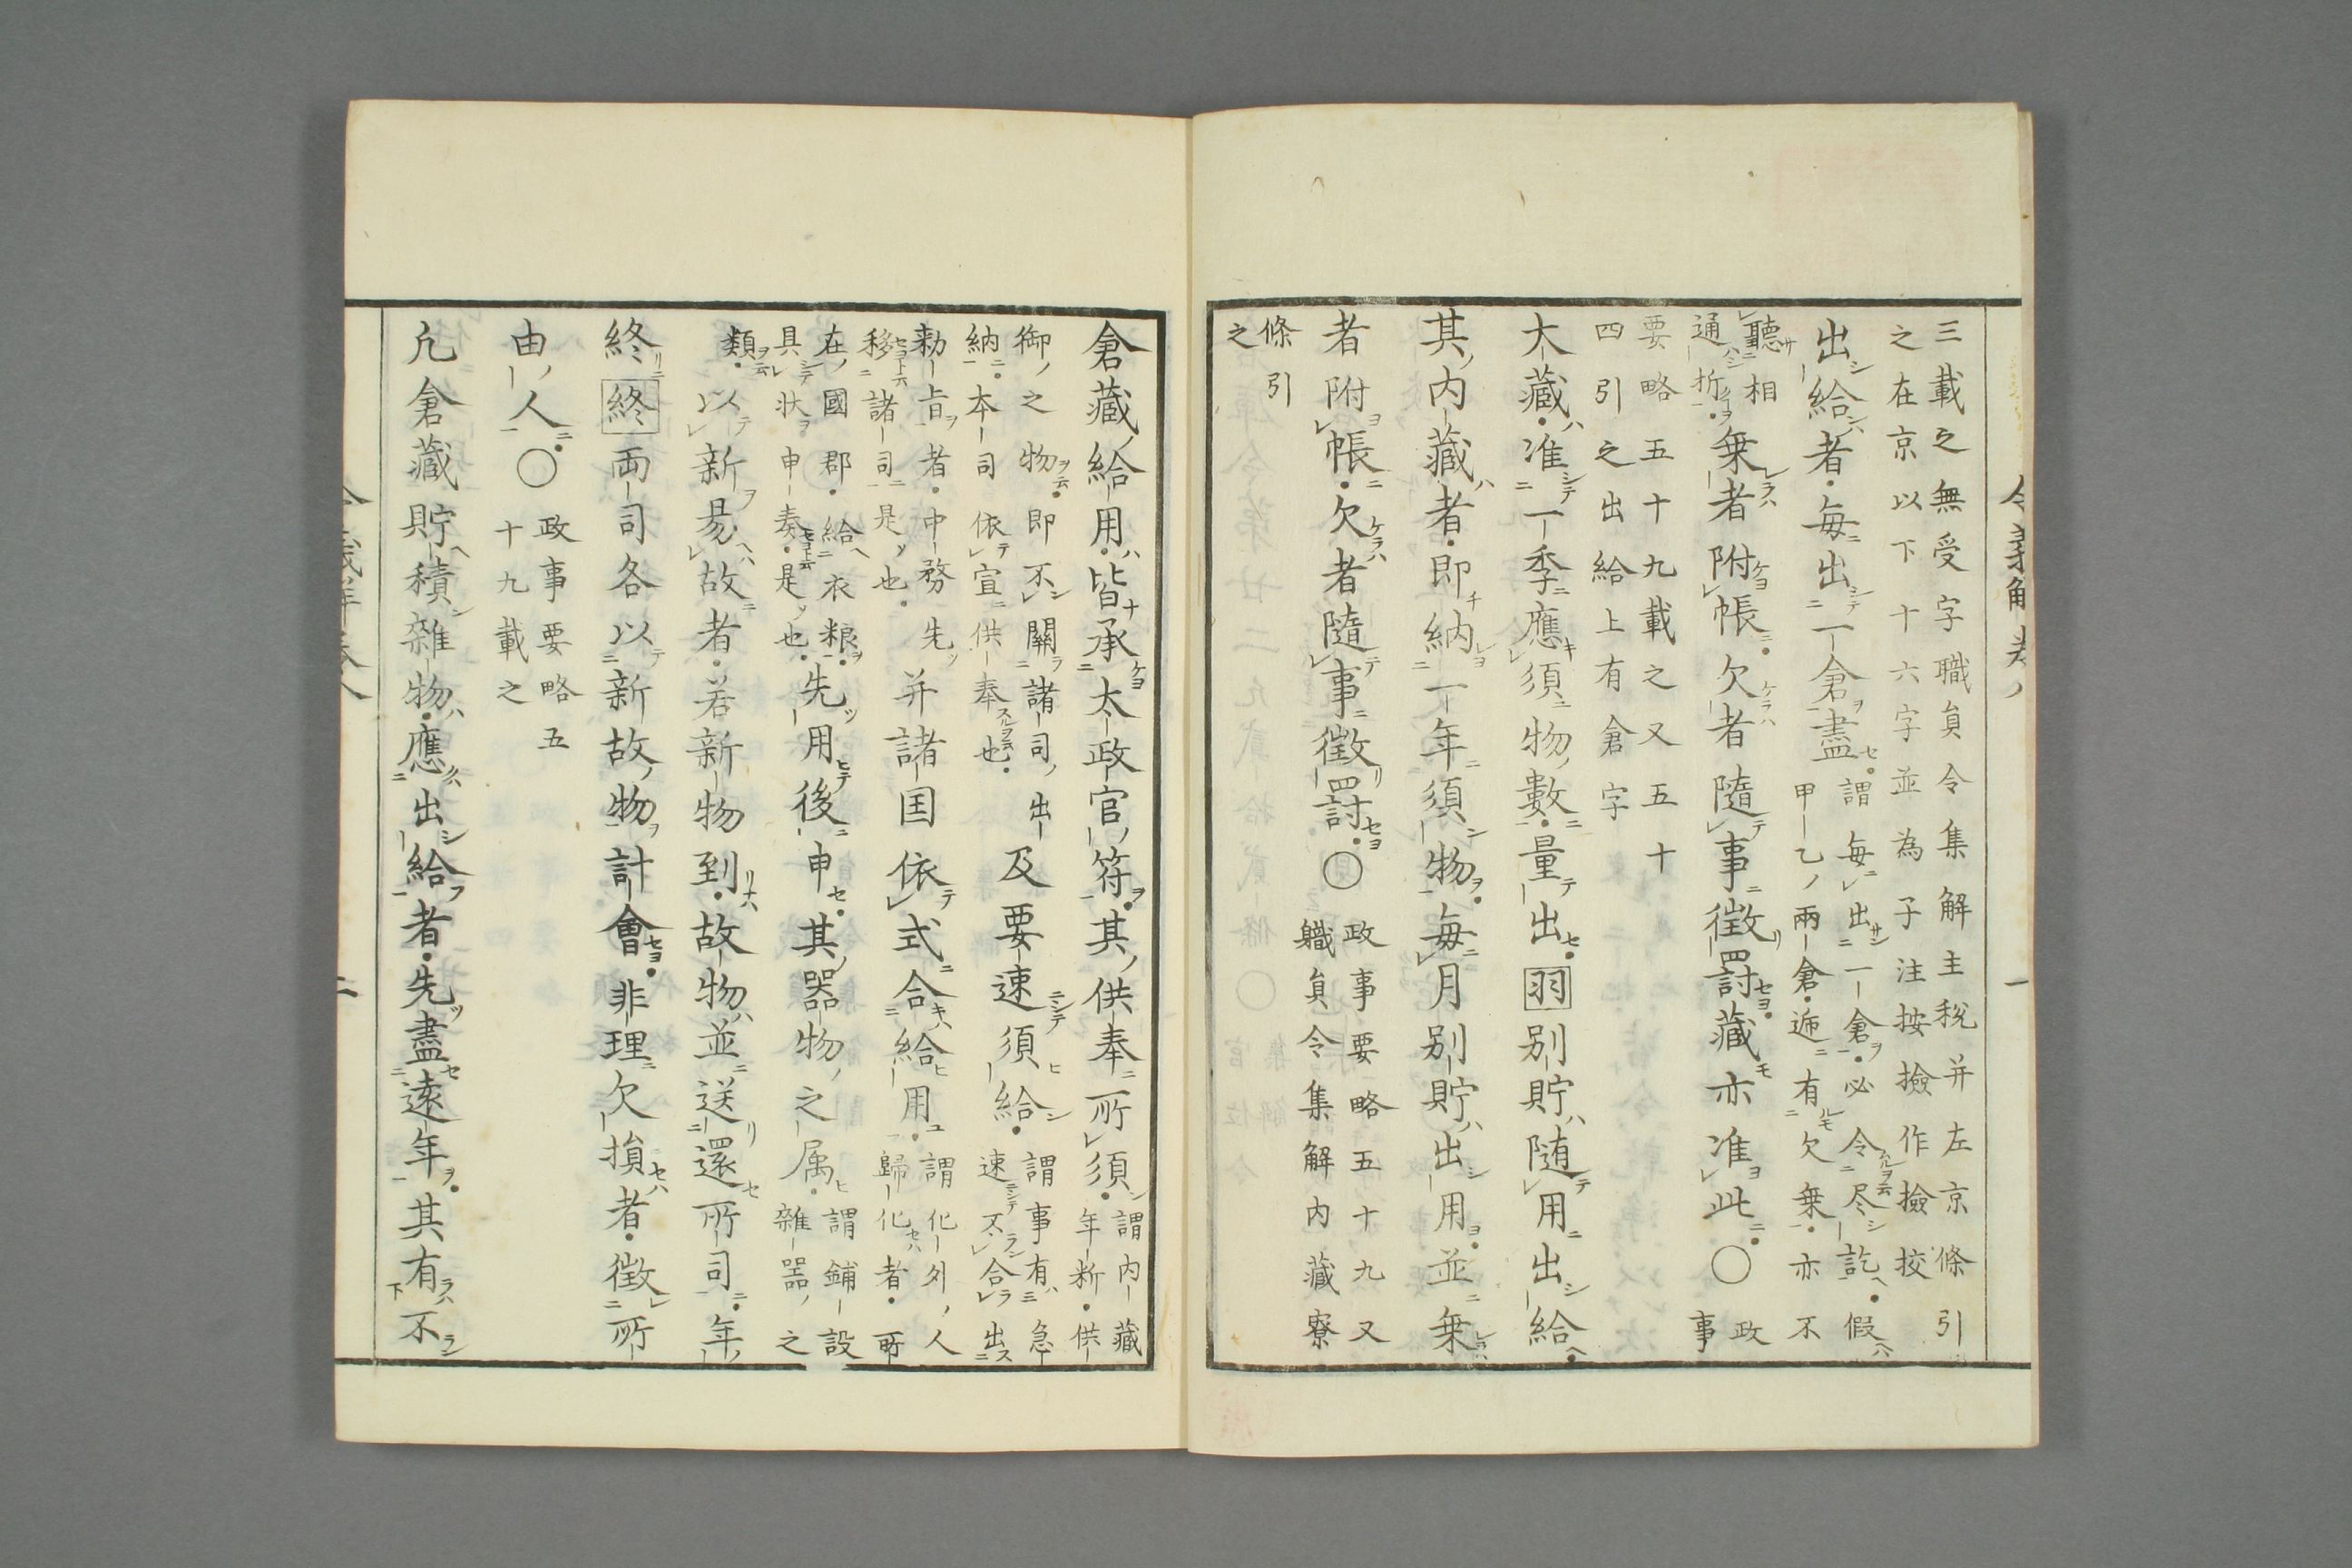 三載之無受字職負令集解主税并左京條引
之在京以下十六字並為子注按撿作撿挍
出給者每出一倉盡謂每出一倉必令尽訖假
甲乙兩倉遞有欠乗亦不
聽相
通折乗者附帳欠者隨事徴罸藏亦准此〇政
事
要略五十九載之又五十
四引之出給上有倉字
大藏准一季應須物數量出羽別貯随用出給
其内藏者即納一年須物每月別貯出用並乗
者附帳欠者隨事徴罸〇政事要略五十九又
職負令集解内藏寮
條引
之
倉藏給用皆承太政官符其供奉所須謂内藏
年斫供
御之物即不關諸司出及要速須給謂事有急
納本司依宣供奉也速不合出
勅旨者中務先并諸国依式合給用謂化外人
移諸司是也歸化者所
在國郡給衣粮先用後申其器物之属謂鋪設
具状申奏是也雜器之
類以新易故者若新物到故物並送還所司年
終終両司各以新故物計會非理欠損者徴所
由人〇政事要略五
十九載之
凡倉藏貯積雜物應出給者先盡遠年其有不